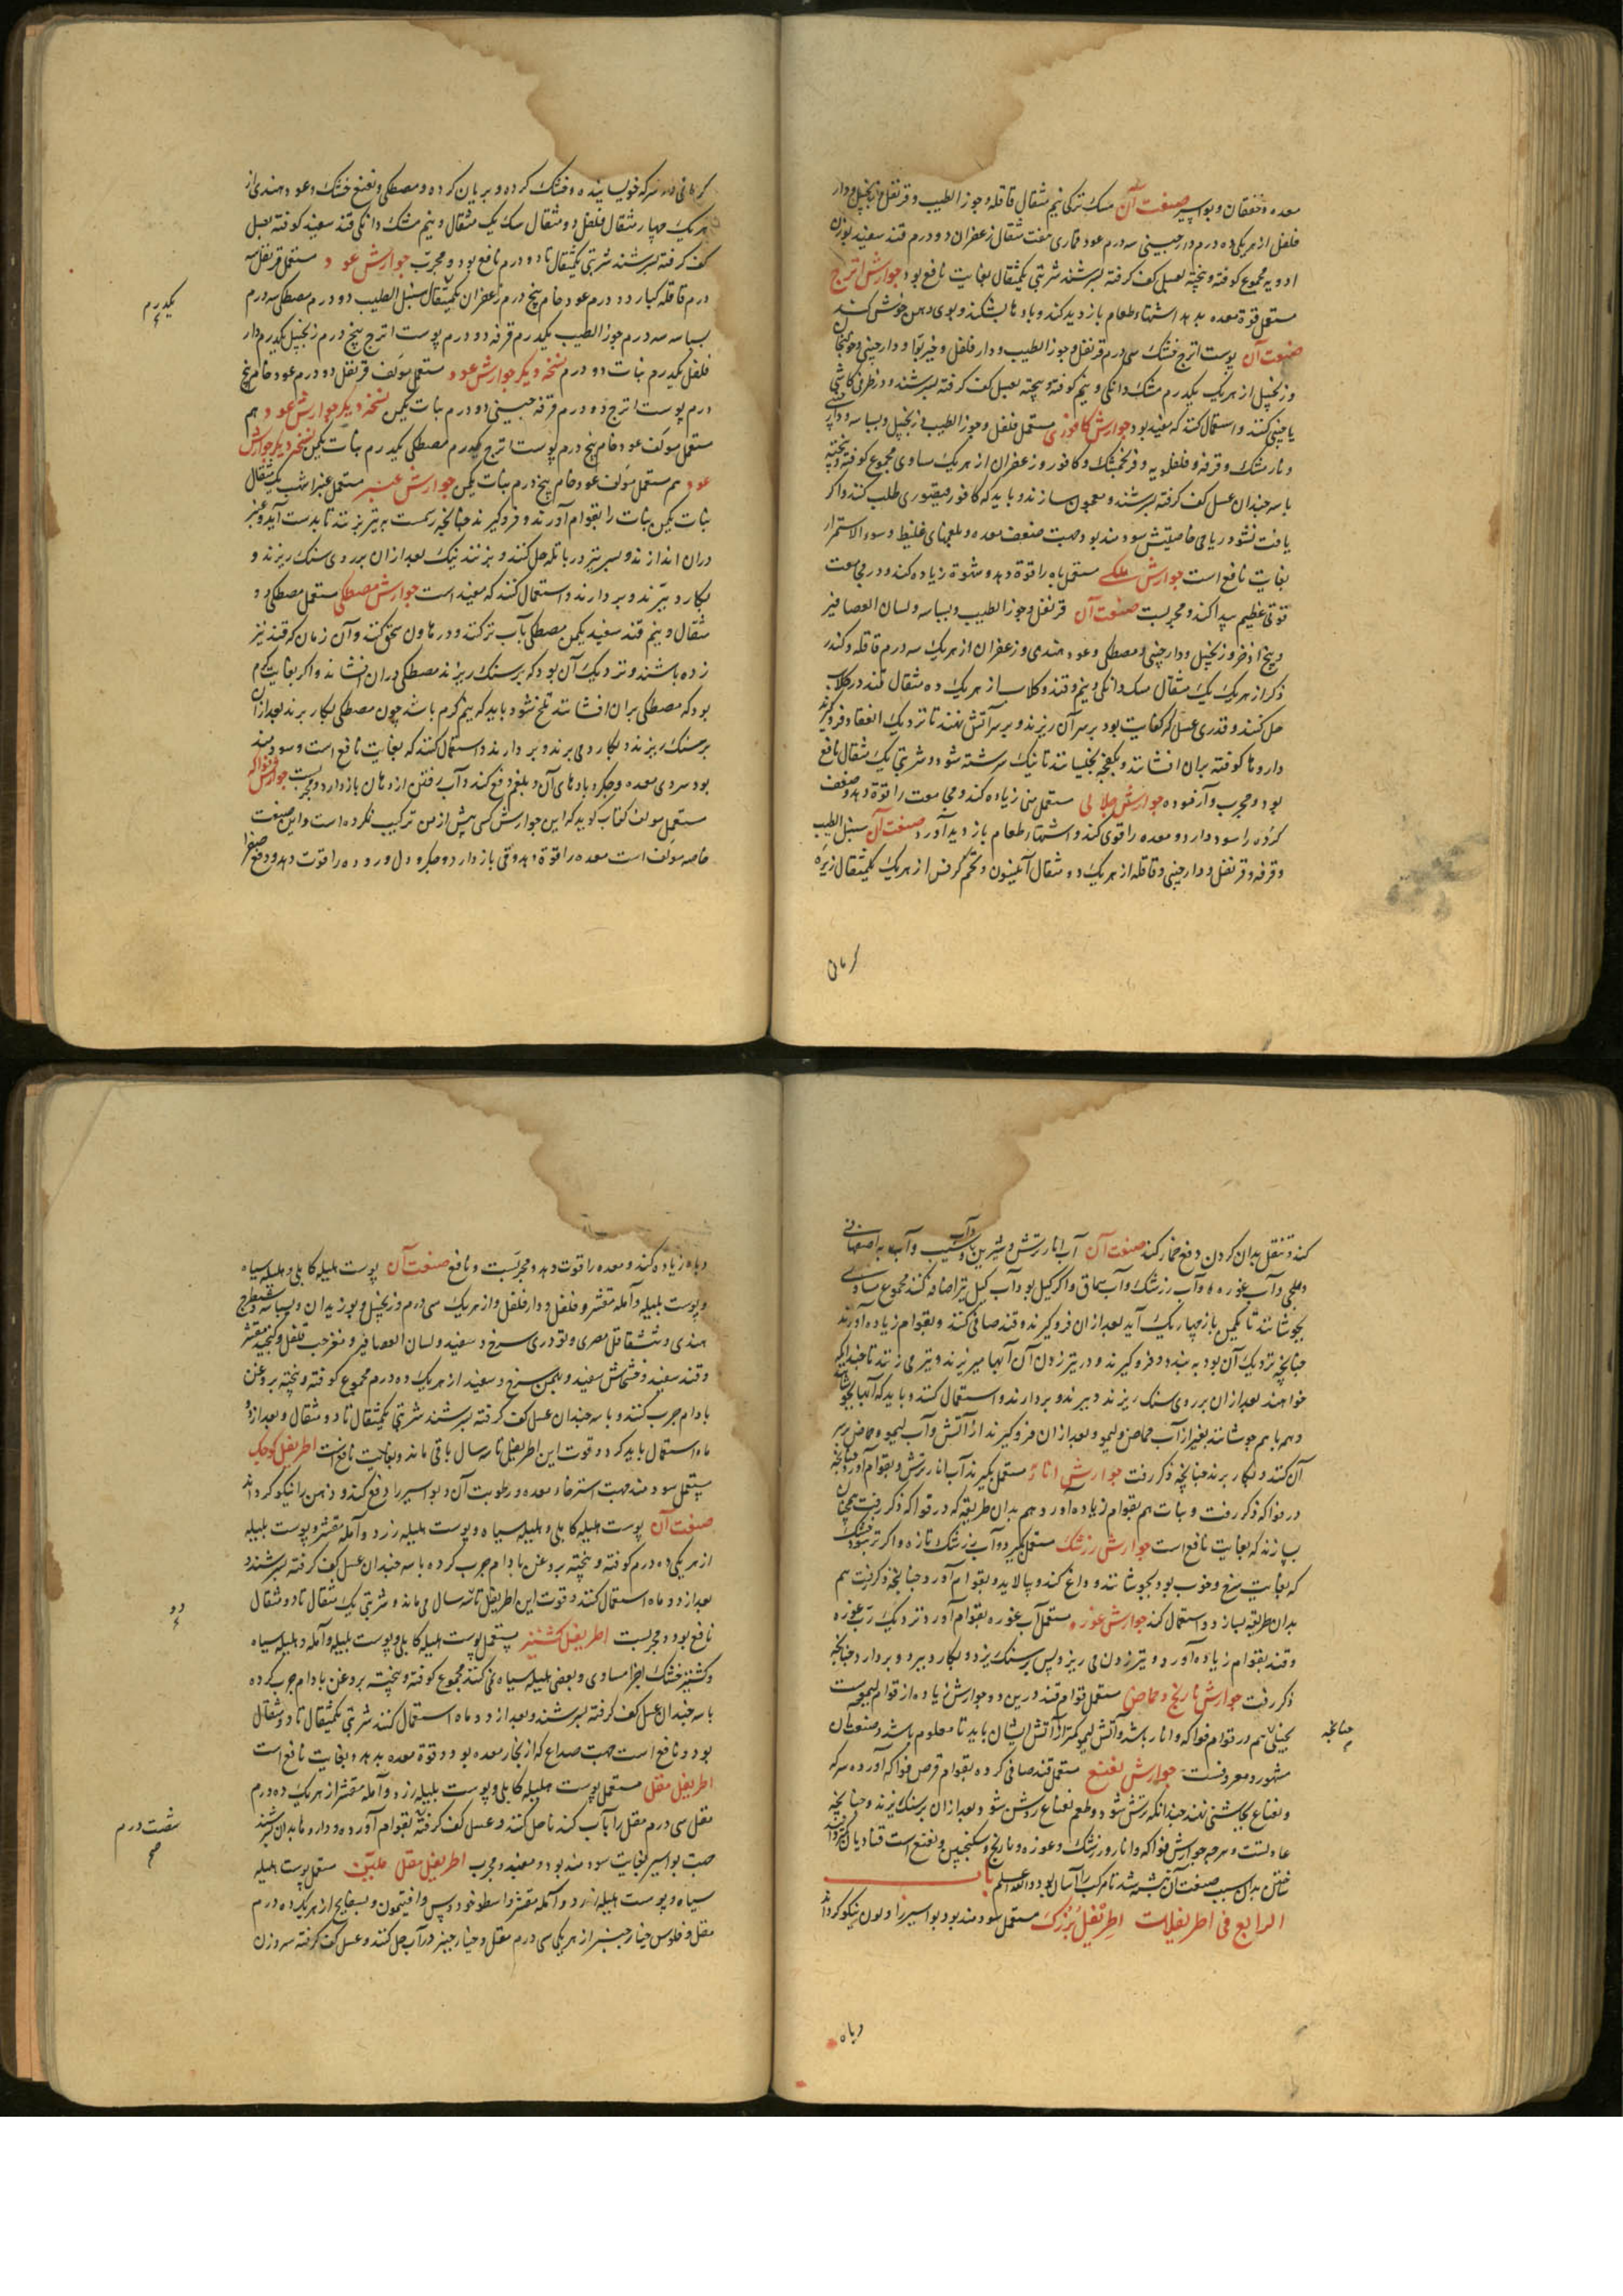 معده و خفقان و بواسیر صنعت آن مسک ترکی نیم مثقال قاقله و جوز الطیب و قرنفل و زنجبیل و دار
فلفل از هر یکی ده درم دارچینی سه درم عود قماری هفت مثقال زعفران دو درم قند سفید بوزن
ادویه مجموع کوفته و بیخته بعسل کف گرفته بسرشند شربتی یکمثقال بغایت نافع بود جوارش اترج
مستعمل قوة معده بدهد اشتهاء طعام بازدید کند و بادها بشکند و بوی دهن خوش کند
صنعت آن پوست اترج خشک سی درم قرنفل و جوز الطیب و دار فلفل و خیربوا و دارچینی و خولنجان
و زنجبیل از هر یک یکدرم مشک دانکی و نیم کوفته و بیخته بعسل کف گرفته بسرشند و در ظرف کاشی
یا چینی کنند و استعمال کنند که مفید بود جوارش کافوری مستعمل فلفل و جوز الطیب و زنجبیل و بسباسه و دارچینی
و نارمشک و قرفه و فلفلمویه و فرنجمشک و کافور و زعفران از هر یک مساوی مجموع کوفته و بیخته
با سه چندان عسل کف گرفته بسرشند و معجون سازند و باید که کافور قیصوری طلب کنند و اگر
یافت نشود ریاحی خاصیتش سودمند بود جهت ضعف معده و بلغمهای غلیظ و سوء الاستمرار
بغایت نافع است جوارش ملکی مستعمل باه را قوة دهد و شهوة زیاده کند و در مجامعت
قوتی عظیم پیدا کند و مجربست صنعت آن قرنفل و جوز الطیب و بسباسه و لسان العصافیر
و بیخ اذخر و زنجبیل و دارچینی و مصطکی و عود هندی و زعفران از هر یک سه درم قاقله و کندر
ذکر از هر یک یک مثقال مسک دانکی و نیم و قند و کلاب از هر یک ده مثقال قند در کلاب
حل کنند و قدری عسل که کفایت بود بر سر آن ریزند و بر سر آتش نهند تا نزدیک انعقاد فرو گیرند
داروها کوفته بران افشانند و بکفچه بجنبانند تا نیک سرشته شود و شربتی یک مثقال نافع
بود و مجرب و آزموده جوارش جلالی مستعمل منی زیاده کند و مجامعت را قوة دهد و ضعف
کرده را سود دارد و معده را قوی کند و اشتهاء طعام بازدید آورد صنعت آن سنبل الطیب
و قرفه و قرنفل و دارچینی و قاقله از هر یک دو مثقال انیسون و تخم کرفس از هر یک یکمثقال زیره
کرمانی
کرمانی در سرکه خویسانیده و خشک کرده و بریان کرده و مصطکی و نعنع خشک و عود هندی از
هر یک چهار مثقال فلفل دو مثقال سک یک مثقال و نیم مشک دانکی قند سفید کوفته بعسل
کف گرفته بسرشند شربتی یکمثقال تا دو درم نافع بود و مجرب جوارش عود مستعمل قرنفل سه
درم قاقله کبار دو درم عود خام پنج درم زعفران یکمثقال سنبل الطیب دو درم مصطکی سه درم
بسباسه سه درم جوز الطیب یکدرم قرفه دو درم پوست اترج پنج درم زنجبیل یکدرم دار
یکدرم
فلفل یکدرم نبات دو درم نسخه دیگر جوارش عود مستعمل مؤلف قرنفل دو درم عود خام پنج
درم پوست اترج دو درم قرفه حبینی دو درم نبات یکمن نسخه دیگر جوارش عود هم
مستعمل مؤلف عود خام پنج درم پوست اترج یکدرم مصطکی یکدرم نبات یکمن نسخه دیگر جوارش
عود هم مستعمل مؤلف عود خام پنج درم نبات یکمن جوارش عنبر مستعمل عنبر اشهب یک مثقال
نبات یکمن نبات را بقوام آورند و فرو گیرند چنانچه رسمست به تیر بزنند تا بدست آید و عنبر
دران اندازند و بسر تیر در پاتله حل کنند و بزنند نیک بعد ازان بر روی سنک ریزند و
بکارد تیزند و بردارند و استعمال کنند که مفید است جوارش مصطکی مستعمل مصطکی دو
مثقال و نیم قند سفید یکمن مصطکی بآب تر کنند و در هاون سحق کنند و آن زمان که قند نیز
زده باشند و نزدیک آن بود که بر سنک ریزند مصطکی دران افشانند و اگر بغایت گرم
بود که مصطکی بران افشانند تلخ شود باید که نیم گرم باشد چون مصطکی بکار برند بعد ازان
بر سنک ریزند و بکارد می برند و بردارند و استعمال کنند که بغایت نافع است و سودمند
بود سردی معده و جگر و بادهای آن و بلغم دفع کند و آب رفتن از دهان باز دارد و مجربست جوارش فواکه
مستعمل مولف کتاب گوید که این جوارش کسی پیش از من ترکیب نکرده است و این صنعت
خاصه مؤلف است معده را قوة دهد و قی باز دارد و جگر و دل و روده را قوت دهد و دفع صفرا
کند و تنقل بدان کردن دفع خمار کند صنعت آن آب انار ترش و شیرین و آب سیب و آب به اصفهانی
و آب غوره و آب زرشک و آب سماق و اگر کیل بود آب کیل نیز اضافه کنند مجموع مساوی
بجوشانند تا یکمن باز چهار یک آید بعد ازان فرو گیرند و قند صافی کنند و بقوام زیاده آورند
چنانچه نزدیک آن بود به بندد و فرو گیرند و در تیر زدن آن آبها میریزند و تیر می زنند تا چندانکه
خواهند بعد ازان بر روی سنک ریزند و ببرند و بردارند و استعمال کنند و باید که آبها بجوشانند
و هم با هم جوشانند بغیر از آب حماض و لیمو و بعد ازان فرو گیرند از آتش و آب لیمو و حماض بر سر
آن کنند و بکار برند چنانچه ذکر رفت جوارش انار مستعمل بگیرند آب انار ترش و بقوام آورند چنانچه
در فواکه ذکر رفت و نبات هم بقوام زیاده آورد و هم بدان طریقه که در فواکه ذکر رفت همچنان
بسازند که بغایت نافع است جوارش زرشک مستعمل بگیرد و آب زرشک تازه و اگر تر نبود خشک
که بغایت سرخ و خوب بود بجوشانند و داغ کند و پالاید و بقوام آورد و چنانچه ذکر رفت هم
بدان طریقه بسازد و استعمال کند جوارش غوره مستعمل آب غوره بقوام آورد نزدیک رب غوره
و قند بقوام زیاده آورد و تیر زدن می ریزد پس بر سنک ریزد و بکارد ببرد و بردارد چنانچه
ذکر رفت جوارش نارنج و حماض مستعمل قوام قند درین دو جوارش زیاده از قوام لیموست
چنانچه
بحیثی هم در قوام فواکه و انار باشد و آتش لیمو کمتر از آتش ایشان باید تا معلوم باشد و صنعت آن
مشهور و معروفست جوارش نعنع مستعمل قند صافی کرده بقوام قرص فواکه آورده سرکه
و نعناع بچاشنی نهند چندانکه ترش شود و طعم نعناع روشن شود و بعد ازان بر سنک ریزند و چنانچه
عادتست و سرجه جوارش فواکه و انار و زرشک و غوره و نارنج و سکنجبین و نعنع است قنادیان
ساختن بدان سبب صنعت آن نبشته شد تا مرکب را آسان بود و الله اعلم باب
الرابع فی اطریفلات اطریفل بزرک مستعمل سودمند بود بواسیر را و لون نیکو کرداند
وباه
وباه زیاده کند و معده را قوت دهد و مجربست و نافع صنعت آن پوست هلیله کابلی و هلیله سیاه
و پوست بلیله و آمله مقشر و فلفل و دار فلفل و از هر یک سی درم و زنجبیل و بوزیدان و بسباسه و شیطرج
هندی و شقاقل مصری و تودری سرخ و سفید و لسان العصافیر و مغز حب قلقل و کنجد مقشر
و قند سفید و خشخاش سفید و بهمن سرخ و سفید از هر یک ده درم مجموع کوفته و بیخته بروغن
بادام چرب کنند و با سه چندان عسل کف گرفته بسرشند شربتی یکمثقال تا دو مثقال و بعد از دو
ماه استعمال باید کرد و قوت این اطریفل تا سه سال باقی ماند و بغایت نافعست اطریفل کوچک
مستعمل سودمند جهت استرخاء معده و رطوبت آن و بواسیر را دفع کند و ذهن را نیکو کرداند
صنعت آن پوست هلیله کابلی و هلیله سیاه و پوست هلیله زرد و آمله مقشر و پوست بلیله
از هر یکی ده درم کوفته و بیخته بروغن بادام چرب کرده با سه چندان عسل کف گرفته بسرشند
بعد از دو ماه استعمال کنند و قوت این اطریفل تا سه سال می ماند و شربتی یک مثقال تا دو مثقال
دو
نافع بود و مجربست اطریفل کشنیز مستعمل پوست هلیله کابلی و پوست بلیله و آمله و هلیله سیاه
و کشنیز خشک اجزا مساوی و بعضی هلیله سیاه نمی کنند مجموع کوفته و بیخته بروغن بادام چرب کرده
با سه چندان عسل کف گرفته بسرشند و بعد از دو ماه استعمال کنند شربتی یکمثقال تا دو مثقال
بود و نافع است جهت صداع که از بخار معده بود و قوة معده بدهد و بغایت نافع است
اطریفل مقل مستعمل پوست هلیله کابلی و پوست بلیله زرد و آمله مقشر از هر یک ده درم
مقل سی درم مقل را بآب کندنا حل کنند و عسل کف گرفته بقوام آورده و داروها بدان بسرشند
شصت درم
صح
جهت بواسیر بغایت سودمند بود و مفید و مجرب اطریفل مقل ملین مستعمل پوست هلیله
سیاه و پوست هلیله زرد و آمله مقشر و اسطوخودوس و افتیمون و بسفایج از هر یک ده درم
مقل و فلوس خیارچنبر از هر یکی سی درم مقل و خیارچنبر در آب حل کنند و عسل کف گرفته سه وزن